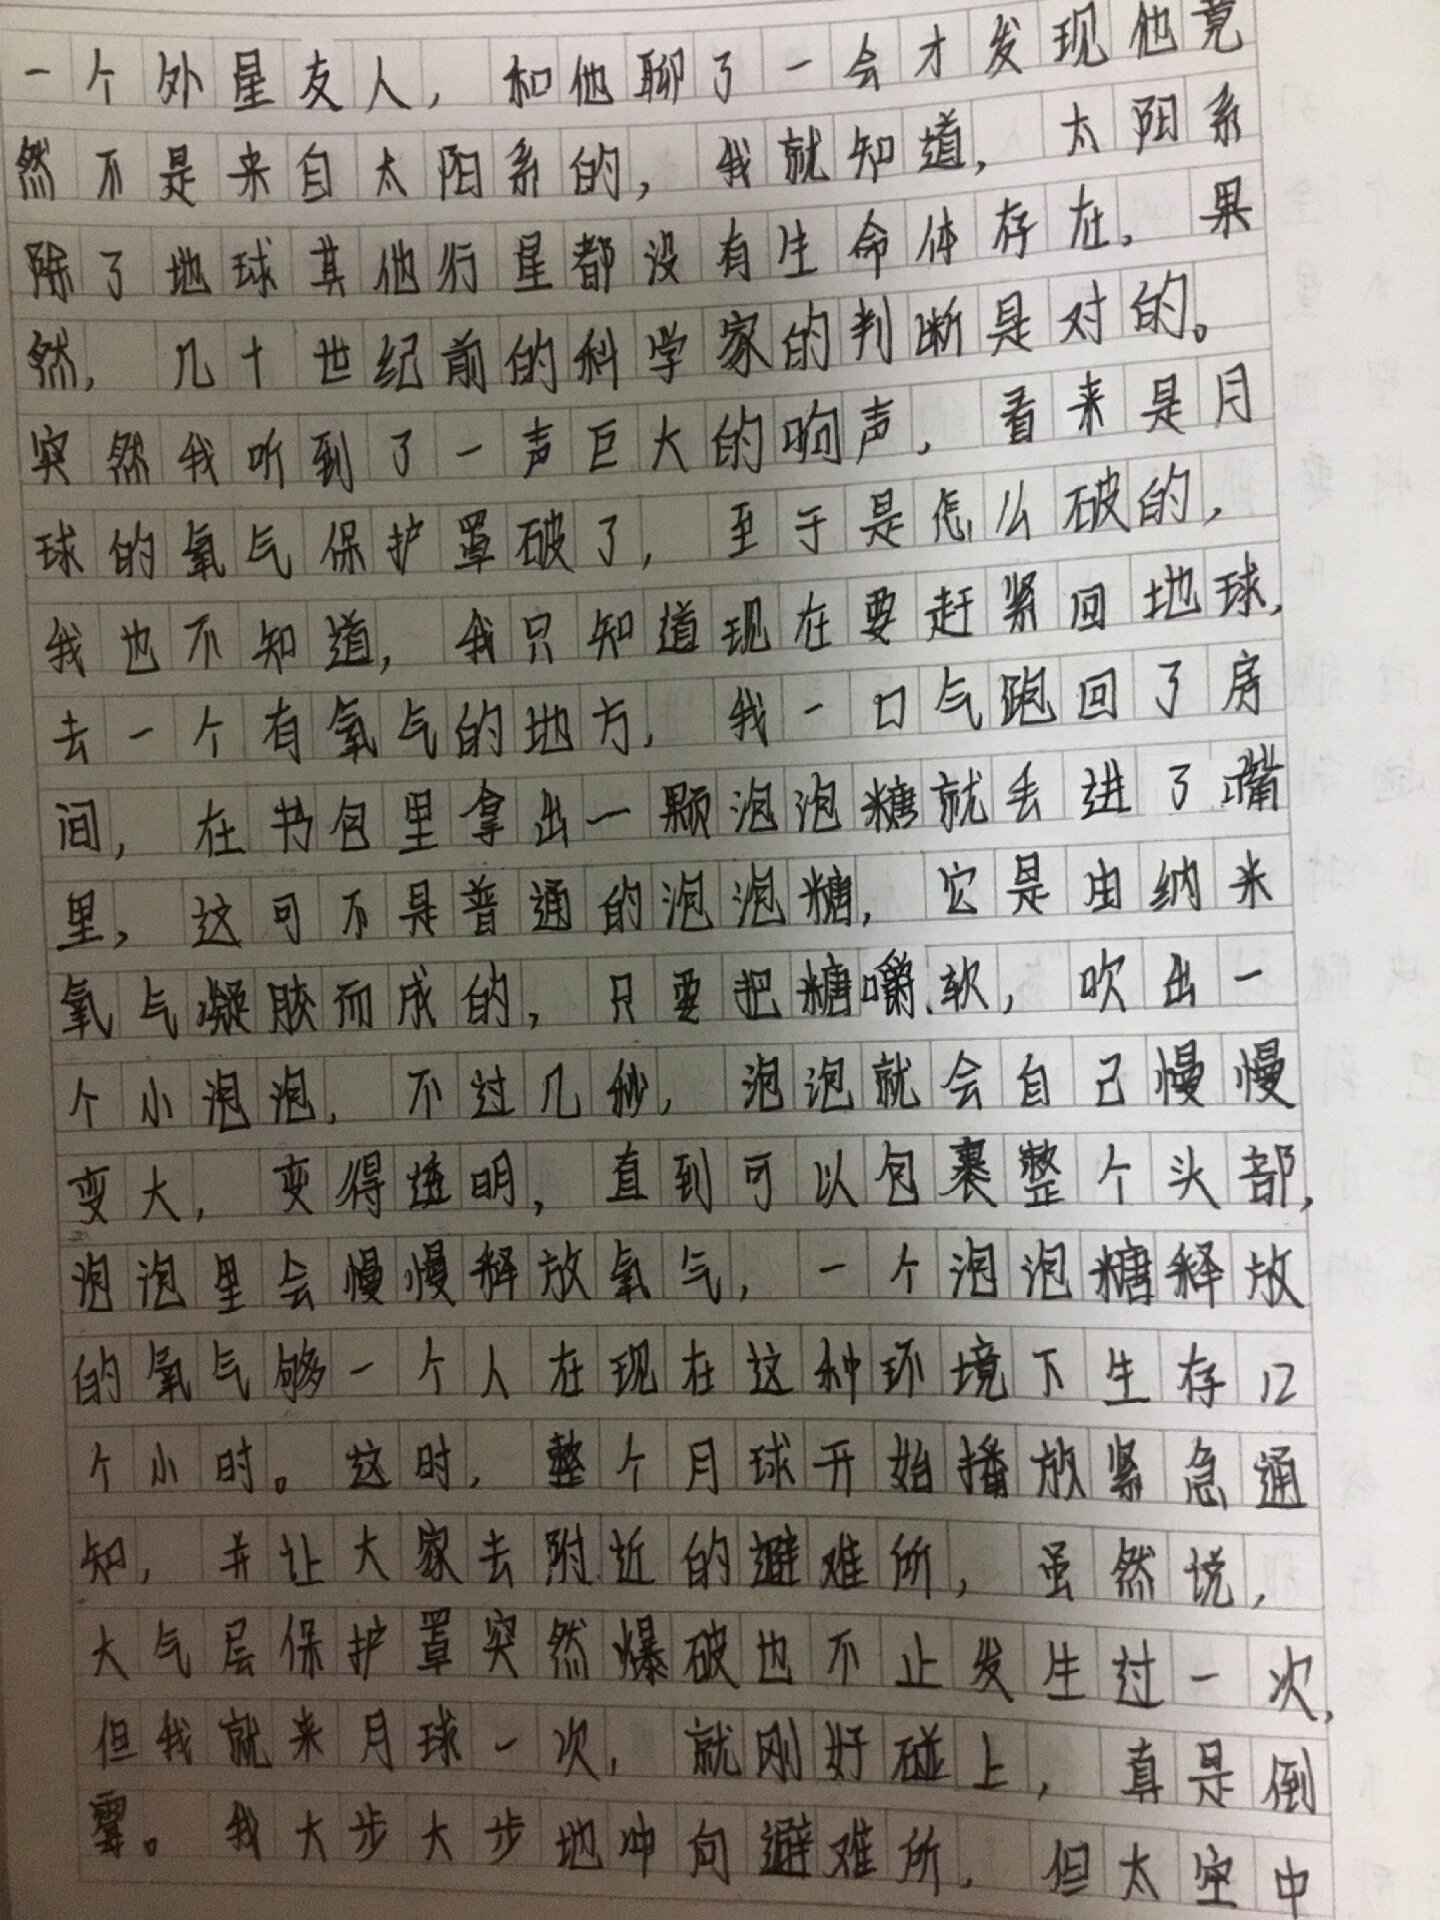 一个外星友人，和他聊了一会才发现他竟
然不是来自太阳系的，我就知道，太阳系
除了地球其他行星都没有生命体存在，果
然，几十世纪前的科学家的判断是对的。
突然我听到了一声巨大的响声，看来是月
球的氧气保护罩破了，至于是怎么破的，
我也不知道，我只知道现在要赶紧回地球，
去一个有氧气的地方，我一口气跑回了房
间，在书包里拿出一颗泡泡糖就丢进了嘴
里，这可不是普通的泡泡糖，它是由纳米
氧气凝胶而成的，只要把糖嚼软，吹出一
个小泡泡，不过几秒，泡泡就会自己慢慢
变大，变得透明，直到可以包裹整个头部，
泡泡里会慢慢释放氧气，一个泡泡糖释放
的氧气够一个人在现在这种环境下生存12
个小时。这时，整个月球开始播放紧急通
知，并让大家去附近的避难所，虽然说，
大气层保护罩突然爆破也不止发生过一次，
但我就来月球一次，就刚好碰上，真是倒
霉。我大步大步地冲向避难所，但太空中